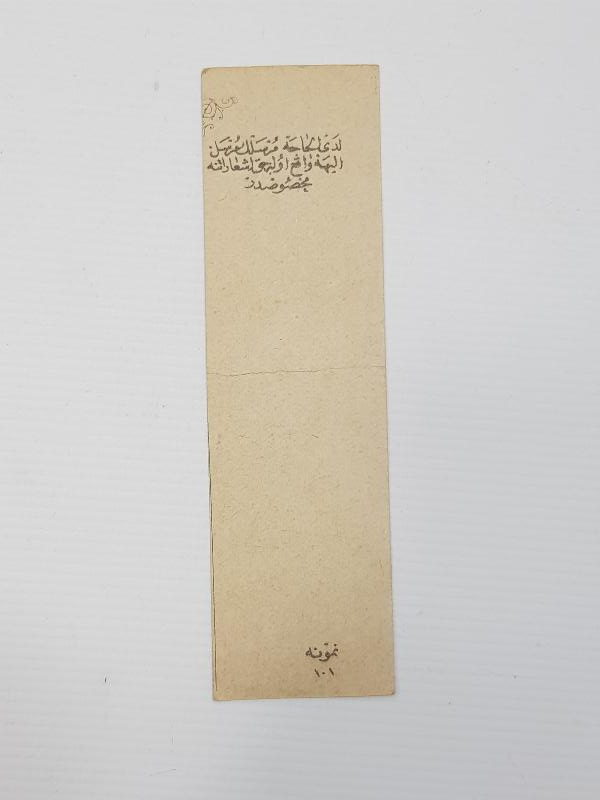 لدى الحاجه مرسلك مرسل
اليهه واقع اوله جق اشعاراتنه
مخصوصدر
نمونه
١٠١